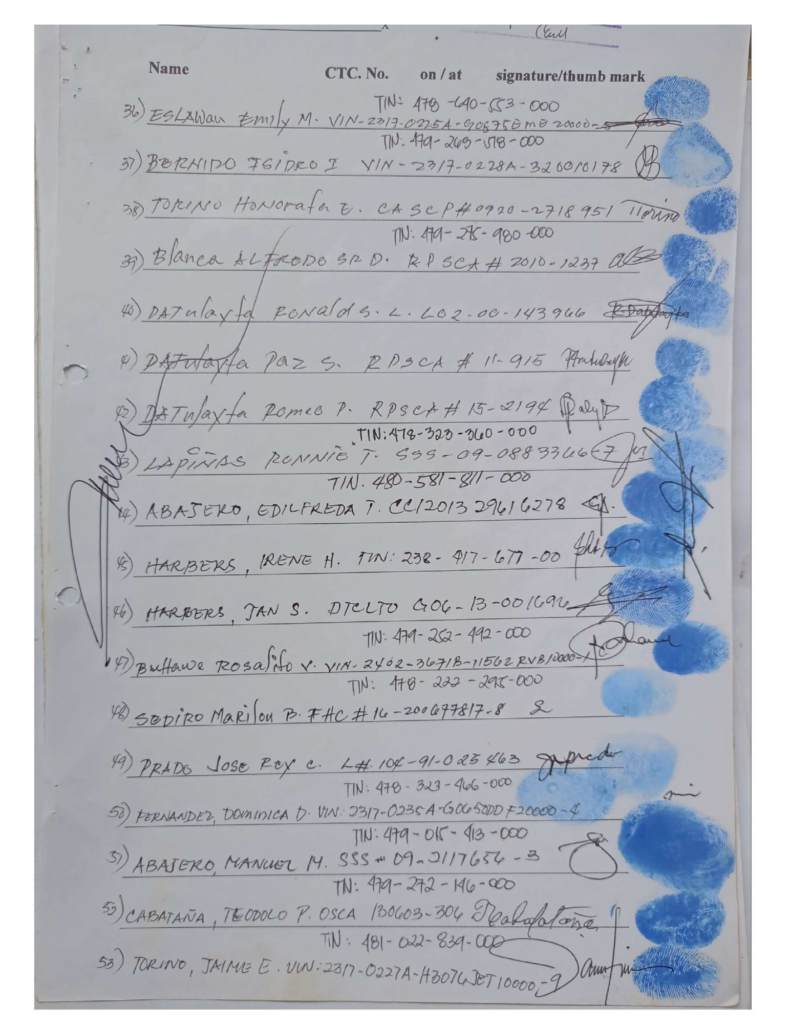 Name CTC. No. on / at signature/thumb mark
TIN: 478-640-553-000
36) ESLAWan Emily M. VIN-2317-0225A-G0675EMB20000-5
TIN: 479-269-518-000
37) BERNIDO ISIDRO I VIN-2317-0228A-320010178
38) TORINO Honorata E. CASCP#0920-2718951 Torino
TIN: 479-275-980-000
39) Blanca ALFRODO SR D. RPSCA # 2010-1237
40) DATulayta RONALd S. L. L02-00-143966
41) DATulayta Paz S. RPSCA # 11-915
42) DATulayta Romeo P. RPSCA # 15-2194
TIN: 478-323-360-000
43) LAPIÑAS RONNIE T. SSS-09-0883366-7
TIN. 480-581-811-000
44) ABAJERO, EDILFREDA T. CCI2013 29616278
45) HARBERS, IRENE H. TIN: 238-417-677-00
46) HARBERS, JAN S. DTCLTO G06-13-001696
TIN: 479-262-492-000
47) Buttawe Rosalito V. VIN-2402-3671B-11562RVB10000-1
TIN: 478-222-295-000
48) SEDIRO Marilou B. FHC # 16-200677817-8
49) PRADO Jose Rey C. L#. 104-91-025463
TIN: 478-323-466-000
50) FERNANDEZ, DOMINICA D. VIN: 2317-0235A-G0650DDF20000-4
TIN: 479-015-413-000
51) ABAJERO, MANUEL M. SSS # 09-2117656-3
TIN: 479-272-146-000
53) CABATAÑA, TEODOLO P. OSCA 130603-306
TIN: 481-022-839-000
53) TORINO, JAIME E. VIN: 2317-0227A-H3076JET10000-9